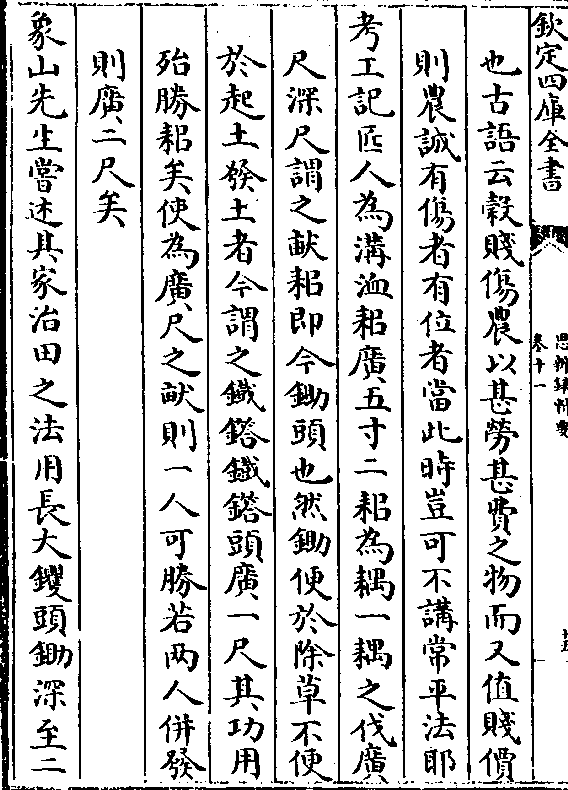 欽定四庫全書
思辨録輯要
卷十一
也古語云穀賤傷農以甚勞甚費之物而又值賤價
則農誠有傷者有位者當此時豈可不講常平法耶
考工記匠人為溝洫耜廣五寸二耜為耦一耦之伐廣
尺深尺謂之畎耜即今鋤頭也然鋤便於除草不便
於起土發土者今謂之鐵鎝鐵鎝頭廣一尺其功用
殆勝耜矣使為廣尺之畎則一人可勝若两人併發
則廣二尺矣
象山先生嘗述其家治田之法用長大钁頭鋤深至二